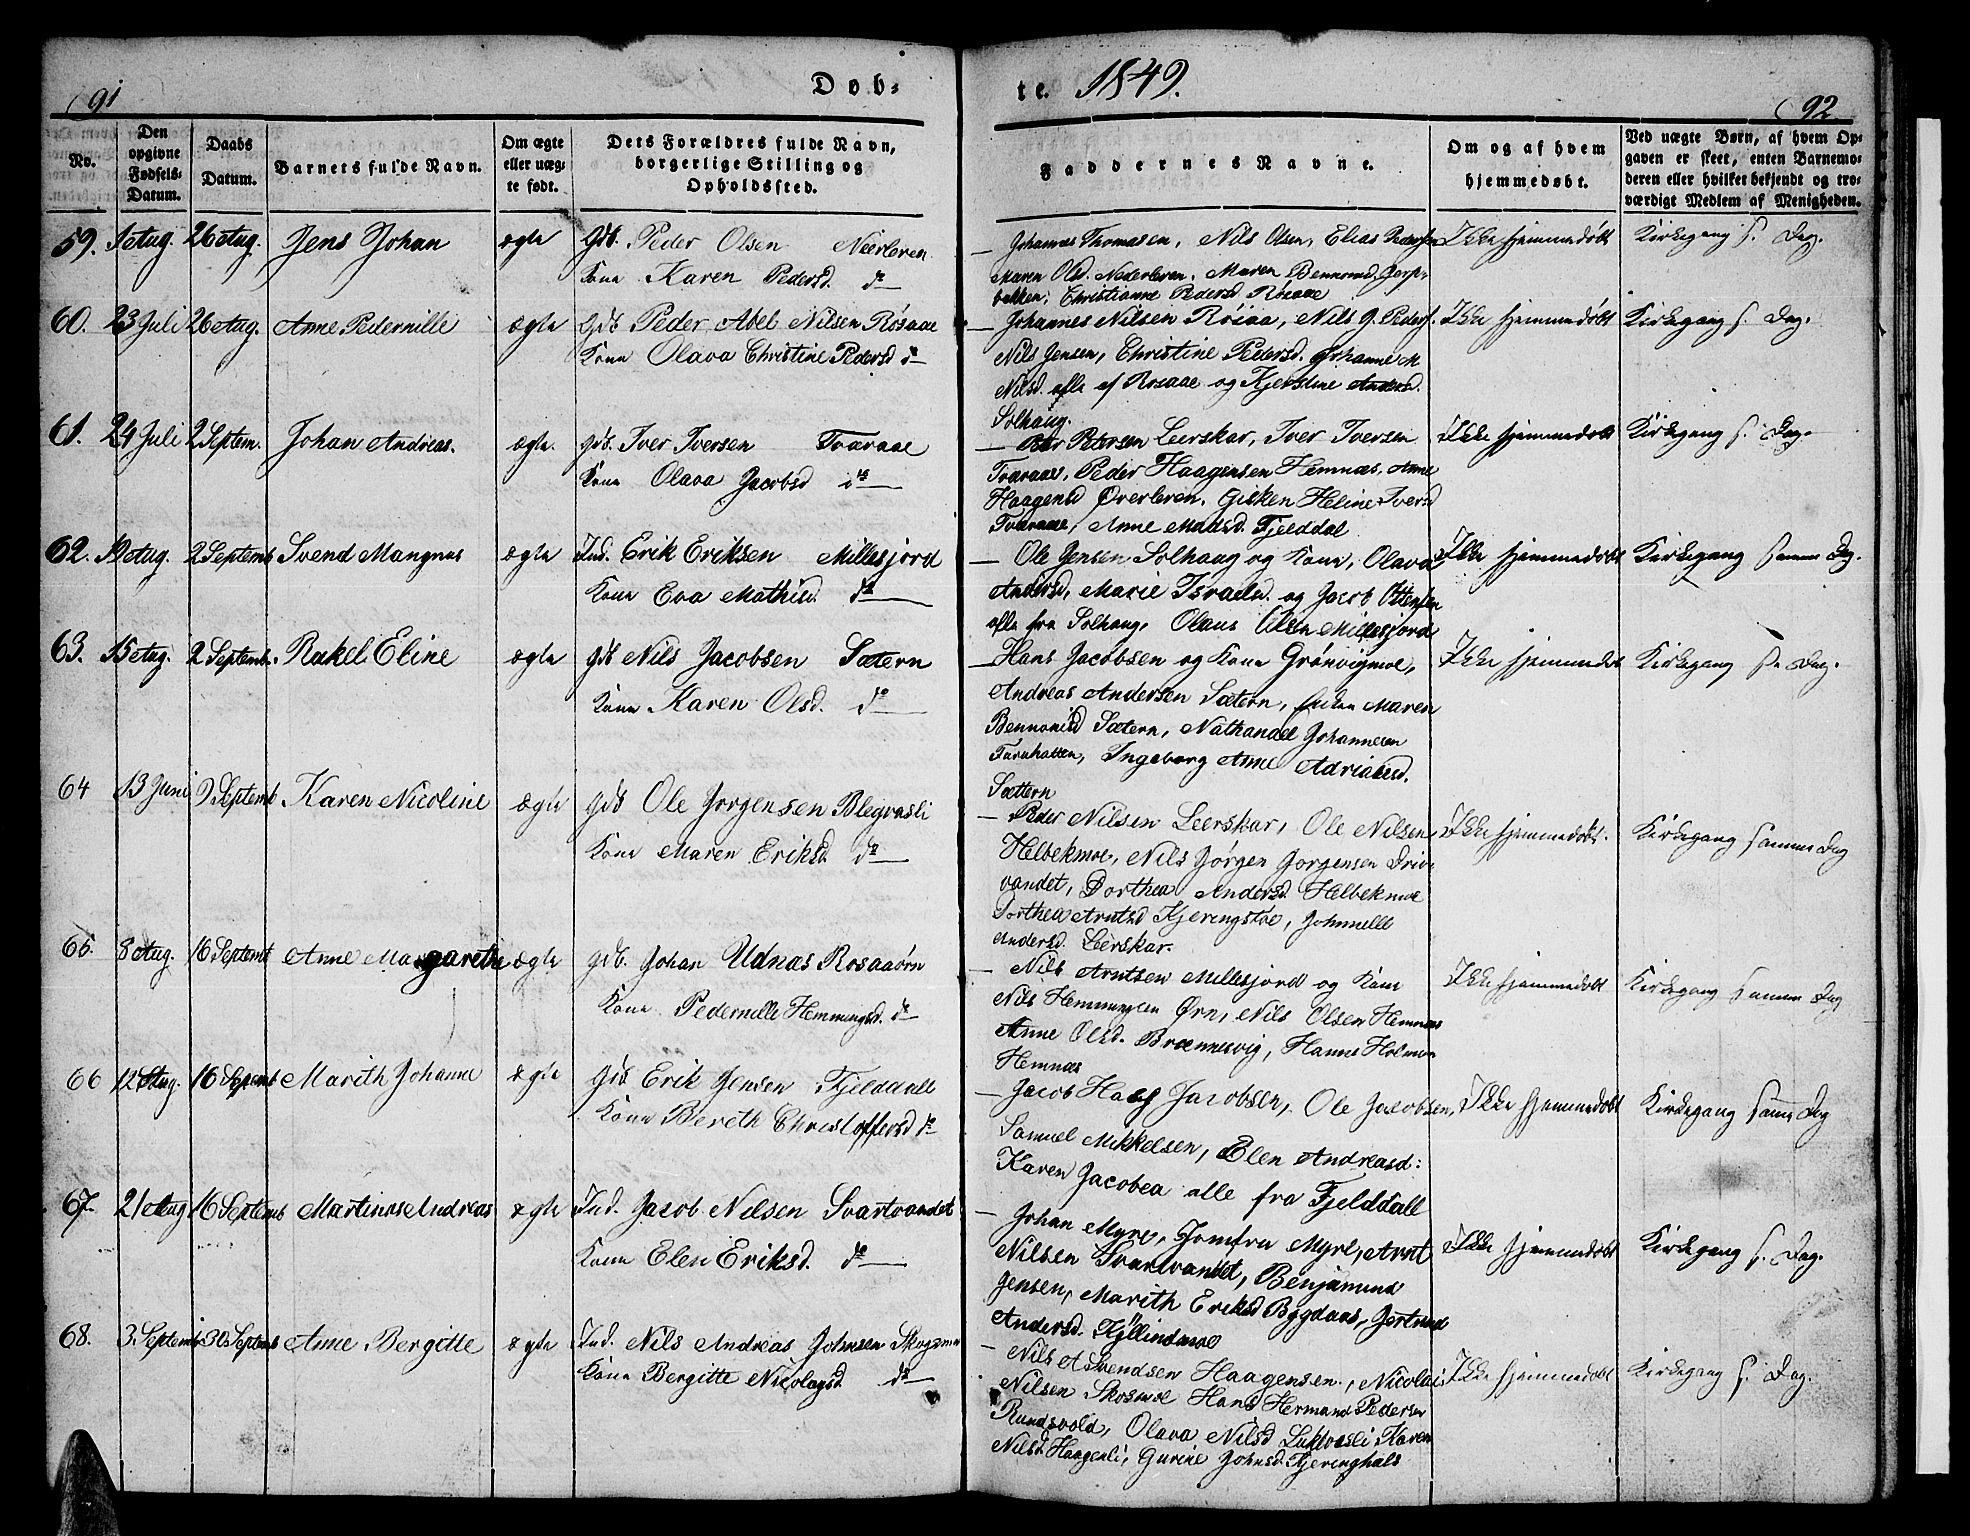 91
Døb-
No.
Den opgivne Fødsels-Datum.
Daabs Datum.
Barnets fulde Navn.
Om ægte eller uægte født.
Dets Forældres fulde Navn, borgerlige Stilling og Opholdssted.
59. 1 Aug. 26 Aug. Jens Johan ægte Gdb. Peder Olsen Nerleren
Kone Karen Pedersd do
60. 23 Juli 26 Aug. Anne Pedernille ægte Gdb Peder Abel Nilsen Røsaae
Kone Olava Christine Pedersd do
61. 24 Juli 2 Septem. Johan Andreas. ægte. Gdb. Iver Iversen Tvaraae
Kone Olava Jacobsd do
62. 19 Aug. 2 Septemb Svend Mangnus ægte Ind. Erik Eriksen Millesjord
Kone Eva Mathisd. do
63. 15 Aug. 2 Septemb. Rakel Eline ægte Gdb Nils Jacobsen Sætern
Kone Karen Olsd. do
64 13 Juni 9 Septemb Karen Nicoline ægte Gdb Ole Jorgensen Blegvasli
Kone Maren Eriksd. do
65. 8 Aug. 16 Septemb Anne Margarethe ægte Gdb. Johan Udnæs Rosaaørn
Kone Pedernille Hemmingsd. do
66 12 Aug. 16 Septemb Marith Johanne ægte Gdb Erik Jensen Fjelddall
Kone Bereth Christoffersd do
67. 21 Aug 16 Septemb Martinus Andreas ægte Ind. Jacob Nilsen Svartvandet
Kone Elen Eriksd. do
68. 3 Septemb 30 Septemb Anne Bergitte ægte Ind. Nils Andreas Johnsen Skogsmo
Kone Bergitte Nicolaysd. do
te. 1849.
92.
Faddernes Navne.
Om og af hvem hjemmedøbt.
Ved uægte Børn, af hvem Opgaven er skeet, enten Barnemoderen eller hvilket bekjendt og troværdigt Medlem af Menigheden.
— Johannes Thomasen, Nils Olsen, Elias Pedersen Ikke hjemmedøbt Kirkegang s. Dag.
Maren Olsd. Nederleren. Maren Bennonsd. Jerp-
bakken, Christianne Pedersd Røsaae
— Johannes Nilsen Røsaa, Nils G. Peders. Ikke hjemmedøbt Kirkegang s. Dag.
Nils Jensen, Christine Pedersd. Johanne M
Nilsd. alle af Rosaae og Kjerstine Andersd.
Solhaug.
— Peter Petersen Leerskar, Iver Iversen Ikke hjemmedøbt Kirkegang s. Dag.
Tvaraae, Peder Haagensen Hemnæs, Anne
Haagensd Øverleren. Gisken Heline Iversd
Tvaraae, Anne Madsd. Fjelddal
— Ole Jensen Solhaug og Kone, Olava Ikke hjemmedøbt Kirkegang samme Dag.
Andersd, Marie Israelsd. og Jacob Ottensen
alle fra Solhaug, Olaus Olsen Millesjord
— Hans Jacobsen og Kone Grønvigmoe, Ikke hjemmedøbt Kirkegang s. Dag.
Andreas Andersen Sætern, Enken Maren
Bennonisd Sætern, Nathanael Johannesen
Furuhatten, Ingeborg Anne Adriansd.
Sættern
— Peder Nilsen Leerskar, Ole Nilsen Ikke hjemmedøbt. Kirkegang samme Dag
Helbekmoe, Nils Jørgen Jorgensen Driv-
vandet, Dorthea Andersd Helbekmoe
Dorthea Arntsd Kjeringstoe, Johnnelle
Andersd. Leerskar.
— Nils Arntsen Millesjord og Kone Ikke hjemmedøbt Kirkegang samme Dag
Nils Hemmingsen Ørn, Nils Olsen Hemnæs
Anne Olsd. Brænnesvig, Hanne Holmen
Hemnæs
— Jacob Haag Jacobsen, Ole Jacobsen, Ikke hjemmedøbt Kirkegang samme Dag
Samuel Mikkelsen, Elen Andreasd:
Karen Jacobea alle fra Fjelddall
— Johan Myre, Jomfru Myre, Arnt Ikke hjemmedøbt Kirkegang s. Dag.
Nilsen Svartvandet, Benjamund
Jensen, Marith Eriksd Bygdaas, Gertrud
Andersd. Kjellindmoe
— Nils A Svendsen Haagensen, Nicolai Ikke hjemmedøbt Kirkegang s. Dag.
Nilsen Skosmoe Hans Hermand Pedersen
Rundsvold, Olava Nilsd Luktvasli Karen
Nilsd Haagenli, Gurine Johnsd Kjeringhals